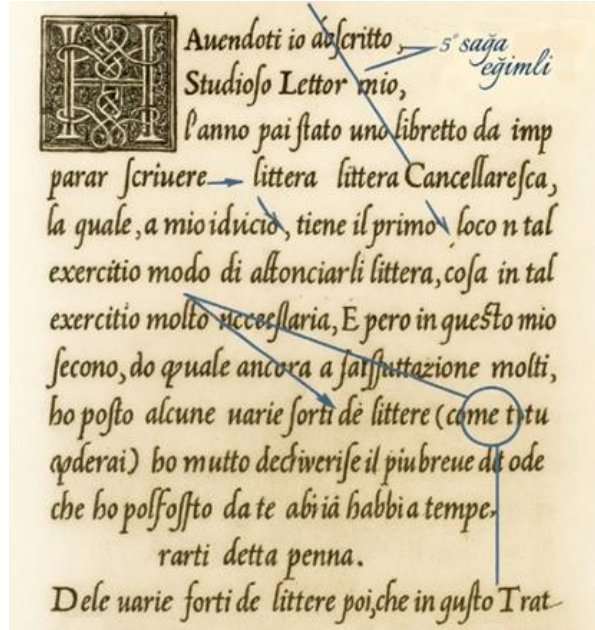 Auendoti io doſcritto,
5° sağa
eğimli
Studioſo Lettor mio,
l'anno pai ſtato uno libretto da imp
parar ſcriuere littera littera Cancellareſca,
la quale, a mio iduicio, tiene il primo loco n tal
exercitio modo di altonciarli littera, coſa in tal
exercitio molto ucceeſſaria, E pero in queſto mio
ſecono, do quale ancora a molti,
ho poſto alcune uarie ſorti de littere (come t) tu
qderai) ho mutto dechiveriſe il piu breue ode
che ho polſoſſto da te abi iã habbi a tempe,
rarti detta penna.
Dele uarie ſorti de littere poi,che in guſto Trat